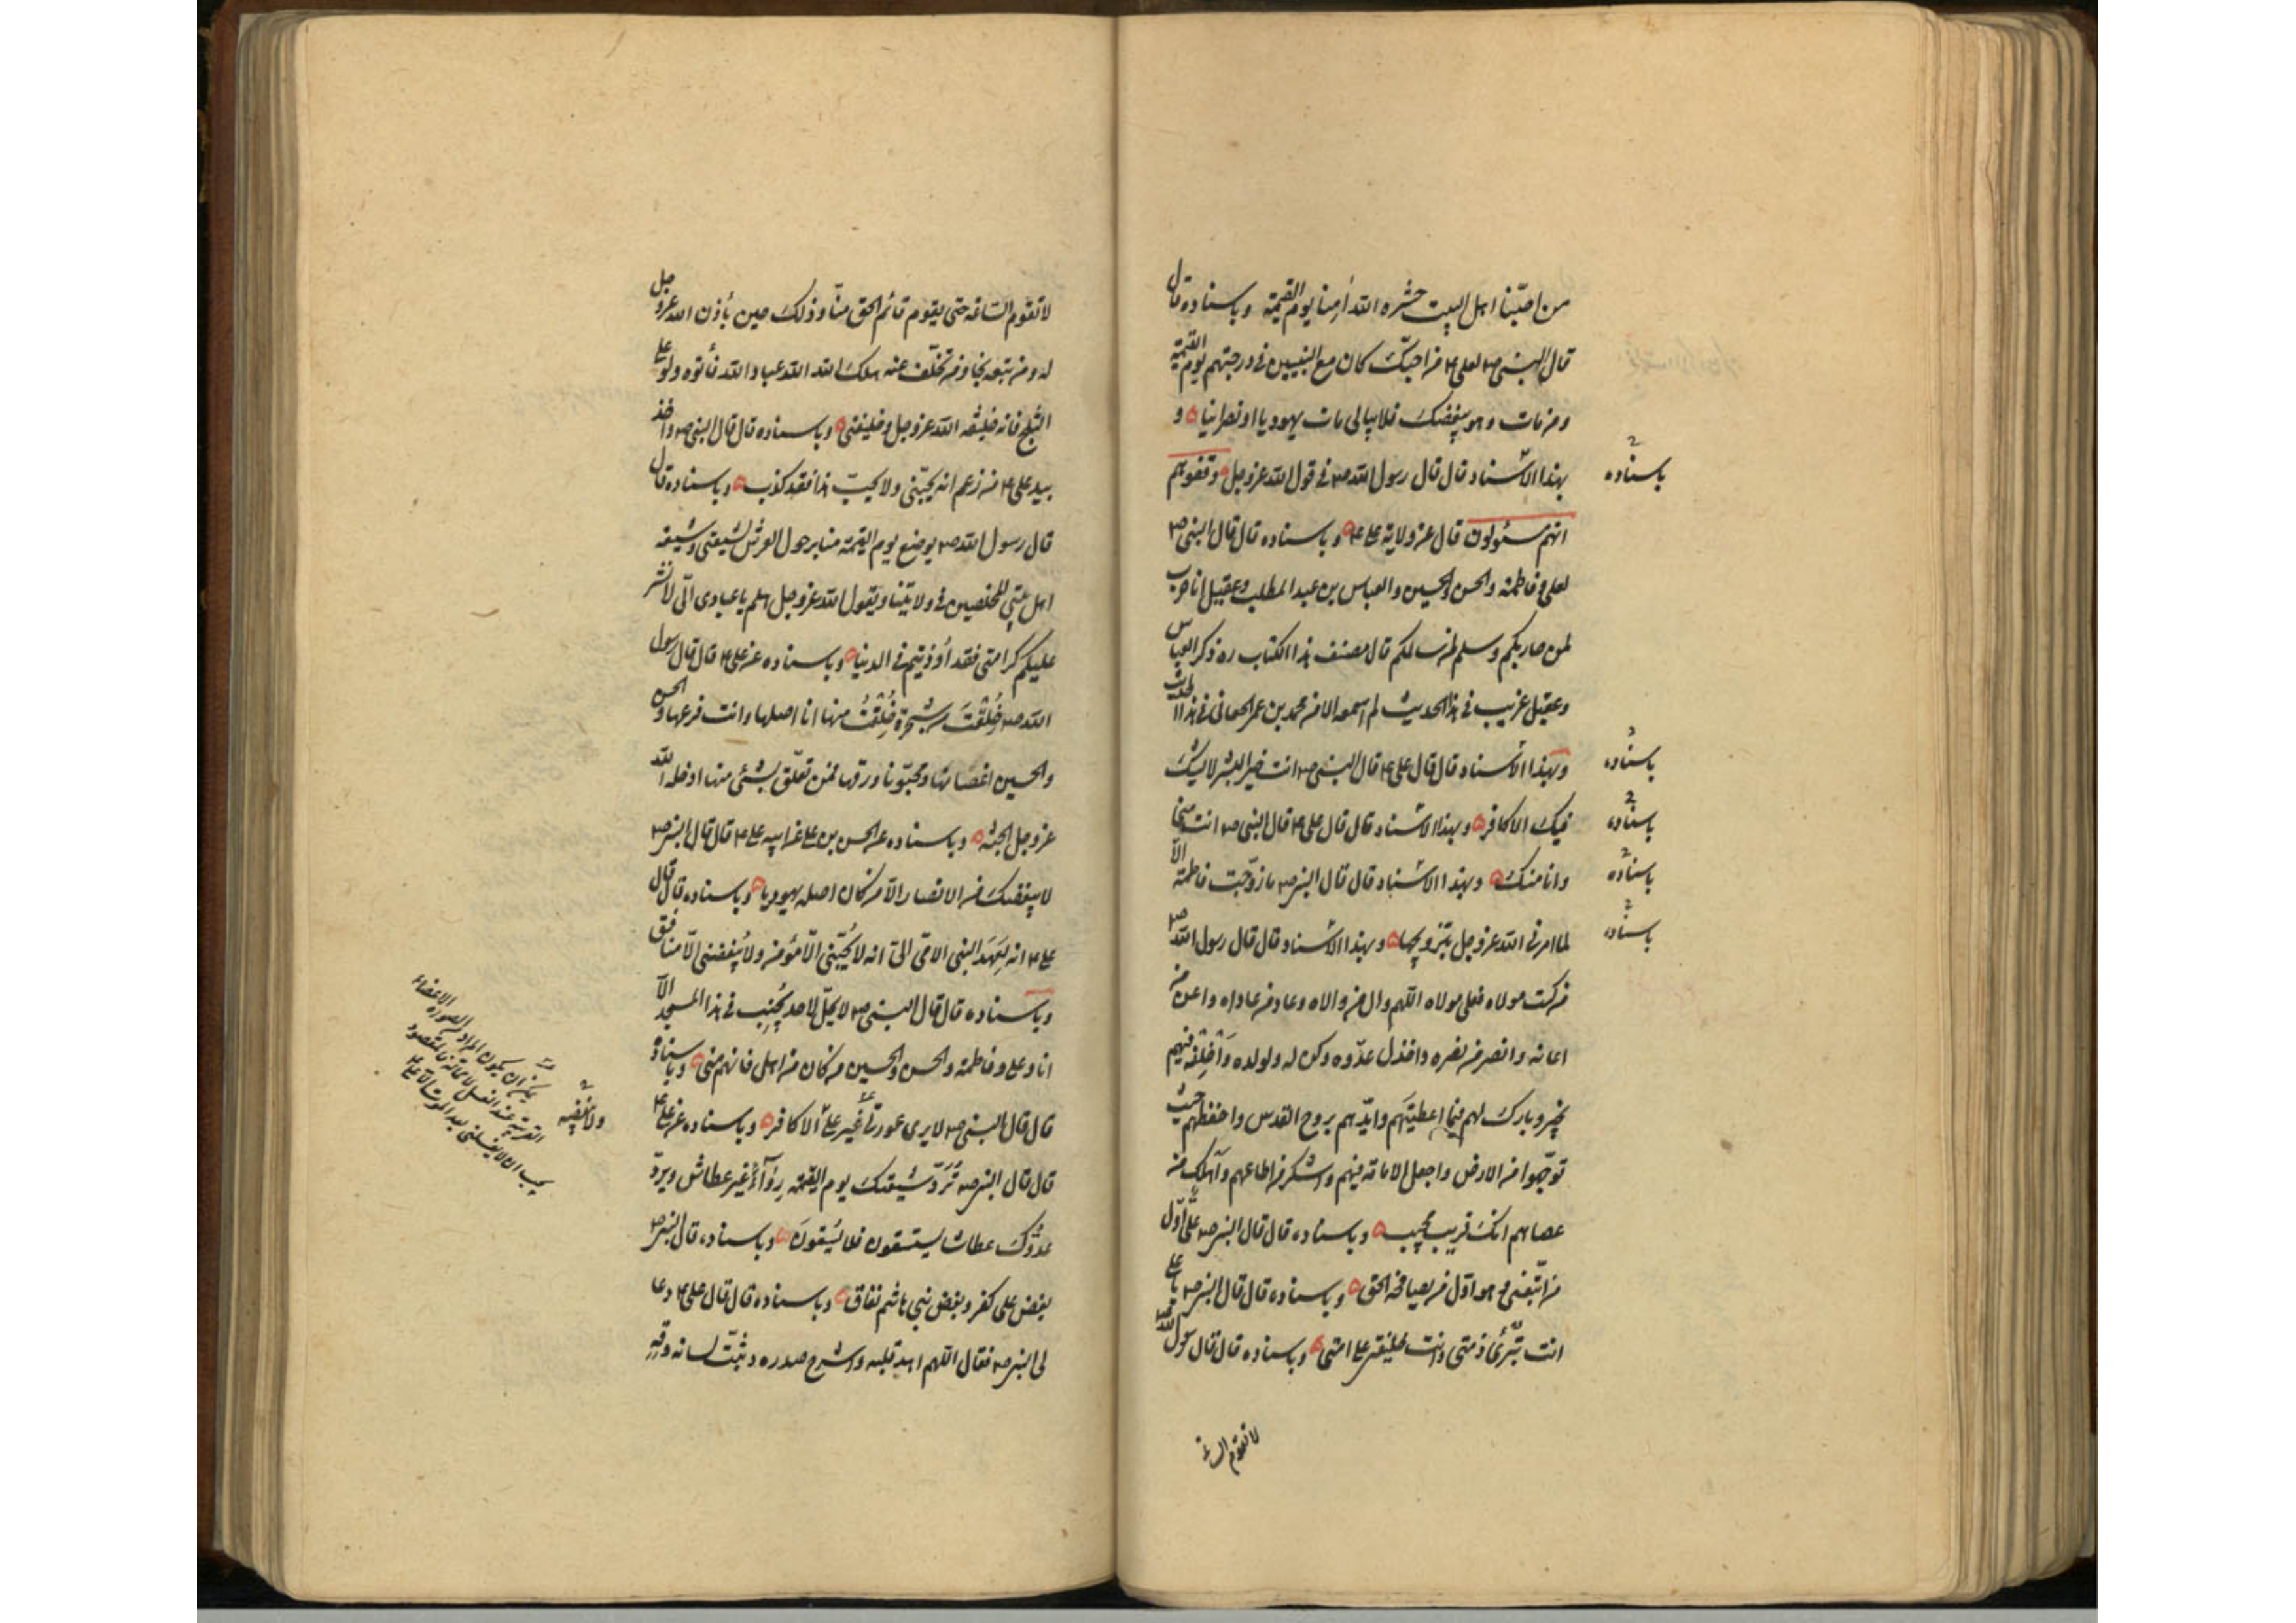 من احبنا اهل البيت حشره الله آمنا يوم القيمة وباسناده قال
قال النبي ص لعلي ع من احبّك كان مع النبيين في درجتهم يوم القيمة
ومن مات وهو يبغضك فلا يبالي مات يهوديا او نصرانيا و
بهذا الاسناد قال قال رسول الله ص في قول الله عز وجل وقفوهم
انهم مسئولون قال عن ولاية علي ع وباسناده قال قال النبي ص
لعلي وفاطمة والحسن والحسين والعباس بن عبد المطلب وعقيل انا حرب
لمن حاربكم وسلم لمن سالمكم قال مصنف هذا الكتاب ره ذكر العباس
وعقيل غريب في هذا الحديث لم اسمعه الا من محمد بن عمر الجعابي في هذا الحديث
وبهذا الاسناد قال قال علي ع قال النبي ص انت خير البشر لا يشك
فيك الا كافر وبهذا الاسناد قال قال علي ع قال النبي ص انت مني
وانا منك وبهذا الاسناد قال قال النبي ص ما زوّجت فاطمة الّا
لما امرني الله عز وجل بتزويجها وبهذا الاسناد قال قال رسول الله ص
من كنت مولاه فعلي مولاه اللهم وال من والاه وعاد من عاداه واعن من
اعانه وانصر من نصره واخذل عدّوه وكن له ولولده واخلفه فيهم
بخير وبارك لهم فيما اعطيتهم وايّدهم بروح القدس واحفظهم حيث
توجّهوا من الارض واجعل الامامة فيهم واشكر من اطاعهم واهلك من
عصاهم انك قريب مجيب وباسناده قال قال النبي ص عليّ اوّل
من اتّبعني وهو اوّل من يصافحه الحق وباسناده قال قال النبي ص يا علي
انت تبرئ ذمتي وانت خليفتي علي امتي وباسناده قال قال رسول الله ص
لا تقوم الساعة
باسناده
باسناده
باسناده
باسناده
باسناده
لا تقوم الساعة حتى يقوم قائم الحق منّا وذلك حين يأذن الله عز وجل
له ومن تبعه نجا ومن تخلّف عنه هلك الله الله عباد الله فأتوه ولو علي
الثلج فانه خليفة الله عز وجل وخليفتي وباسناده قال قال النبي ص واخذ
بيد علي ع من زعم انه يحبّني ولا يحبّ هذا فقد كذب وباسناده قال
قال رسول الله ص يوضع يوم القيمة منابر حول العرش لشيعتي وشيعة
اهل بيتي المخلصين في ولايتنا ويقول الله عز وجل هلم يا عبادي اليّ لانشر
عليكم كرامتي فقد أوذيتم في الدنيا وباسناده عن علي ع قال قال رسول
الله ص خُلقتَ من شجرة خُلقتُ منها انا اصلها وانت فرعها والحسن
والحسين اغصانها ومحبّونا ورقها فمن تعلّق بشئ منها ادخله الله
عز وجل الجنة وباسناده عن الحسن بن علي عن ابيه علي ع قال قال النبي ص
لا يبغضك من الانصار الّا من كان اصله يهوديا وباسناده قال قال
علي ع انه لَعَهد النبي الامّي اليّ انه لا يُحبّني الّا مؤمن ولا يُبغضني الّا منافق
وباسناده قال قال النبي ص لا يحلّ لاحد يُجنِب في هذا المسجد الّا
انا وعلي وفاطمة والحسن والحسين ومن كان من اهلي فانهم مني وباسناده
قال قال النبي ص لا يرى عورتي غير عليّ الا كافر وباسناده عن علي ع
قال قال النبي ص تُرَدّ شيعتك يوم القيمة رِوآءً غير عطاش ويردّ
عدوُّكَ عطاشا يستسقون فلا يُسقَونَ وباسناده قال النبي ص
بغض علي كفر وبغض بني هاشم نفاق وباسناده قال قال علي ع دعا
لي النبي ص فقال اللهم اهد قلبه واشرح صدره وثبّت لسانه وقه